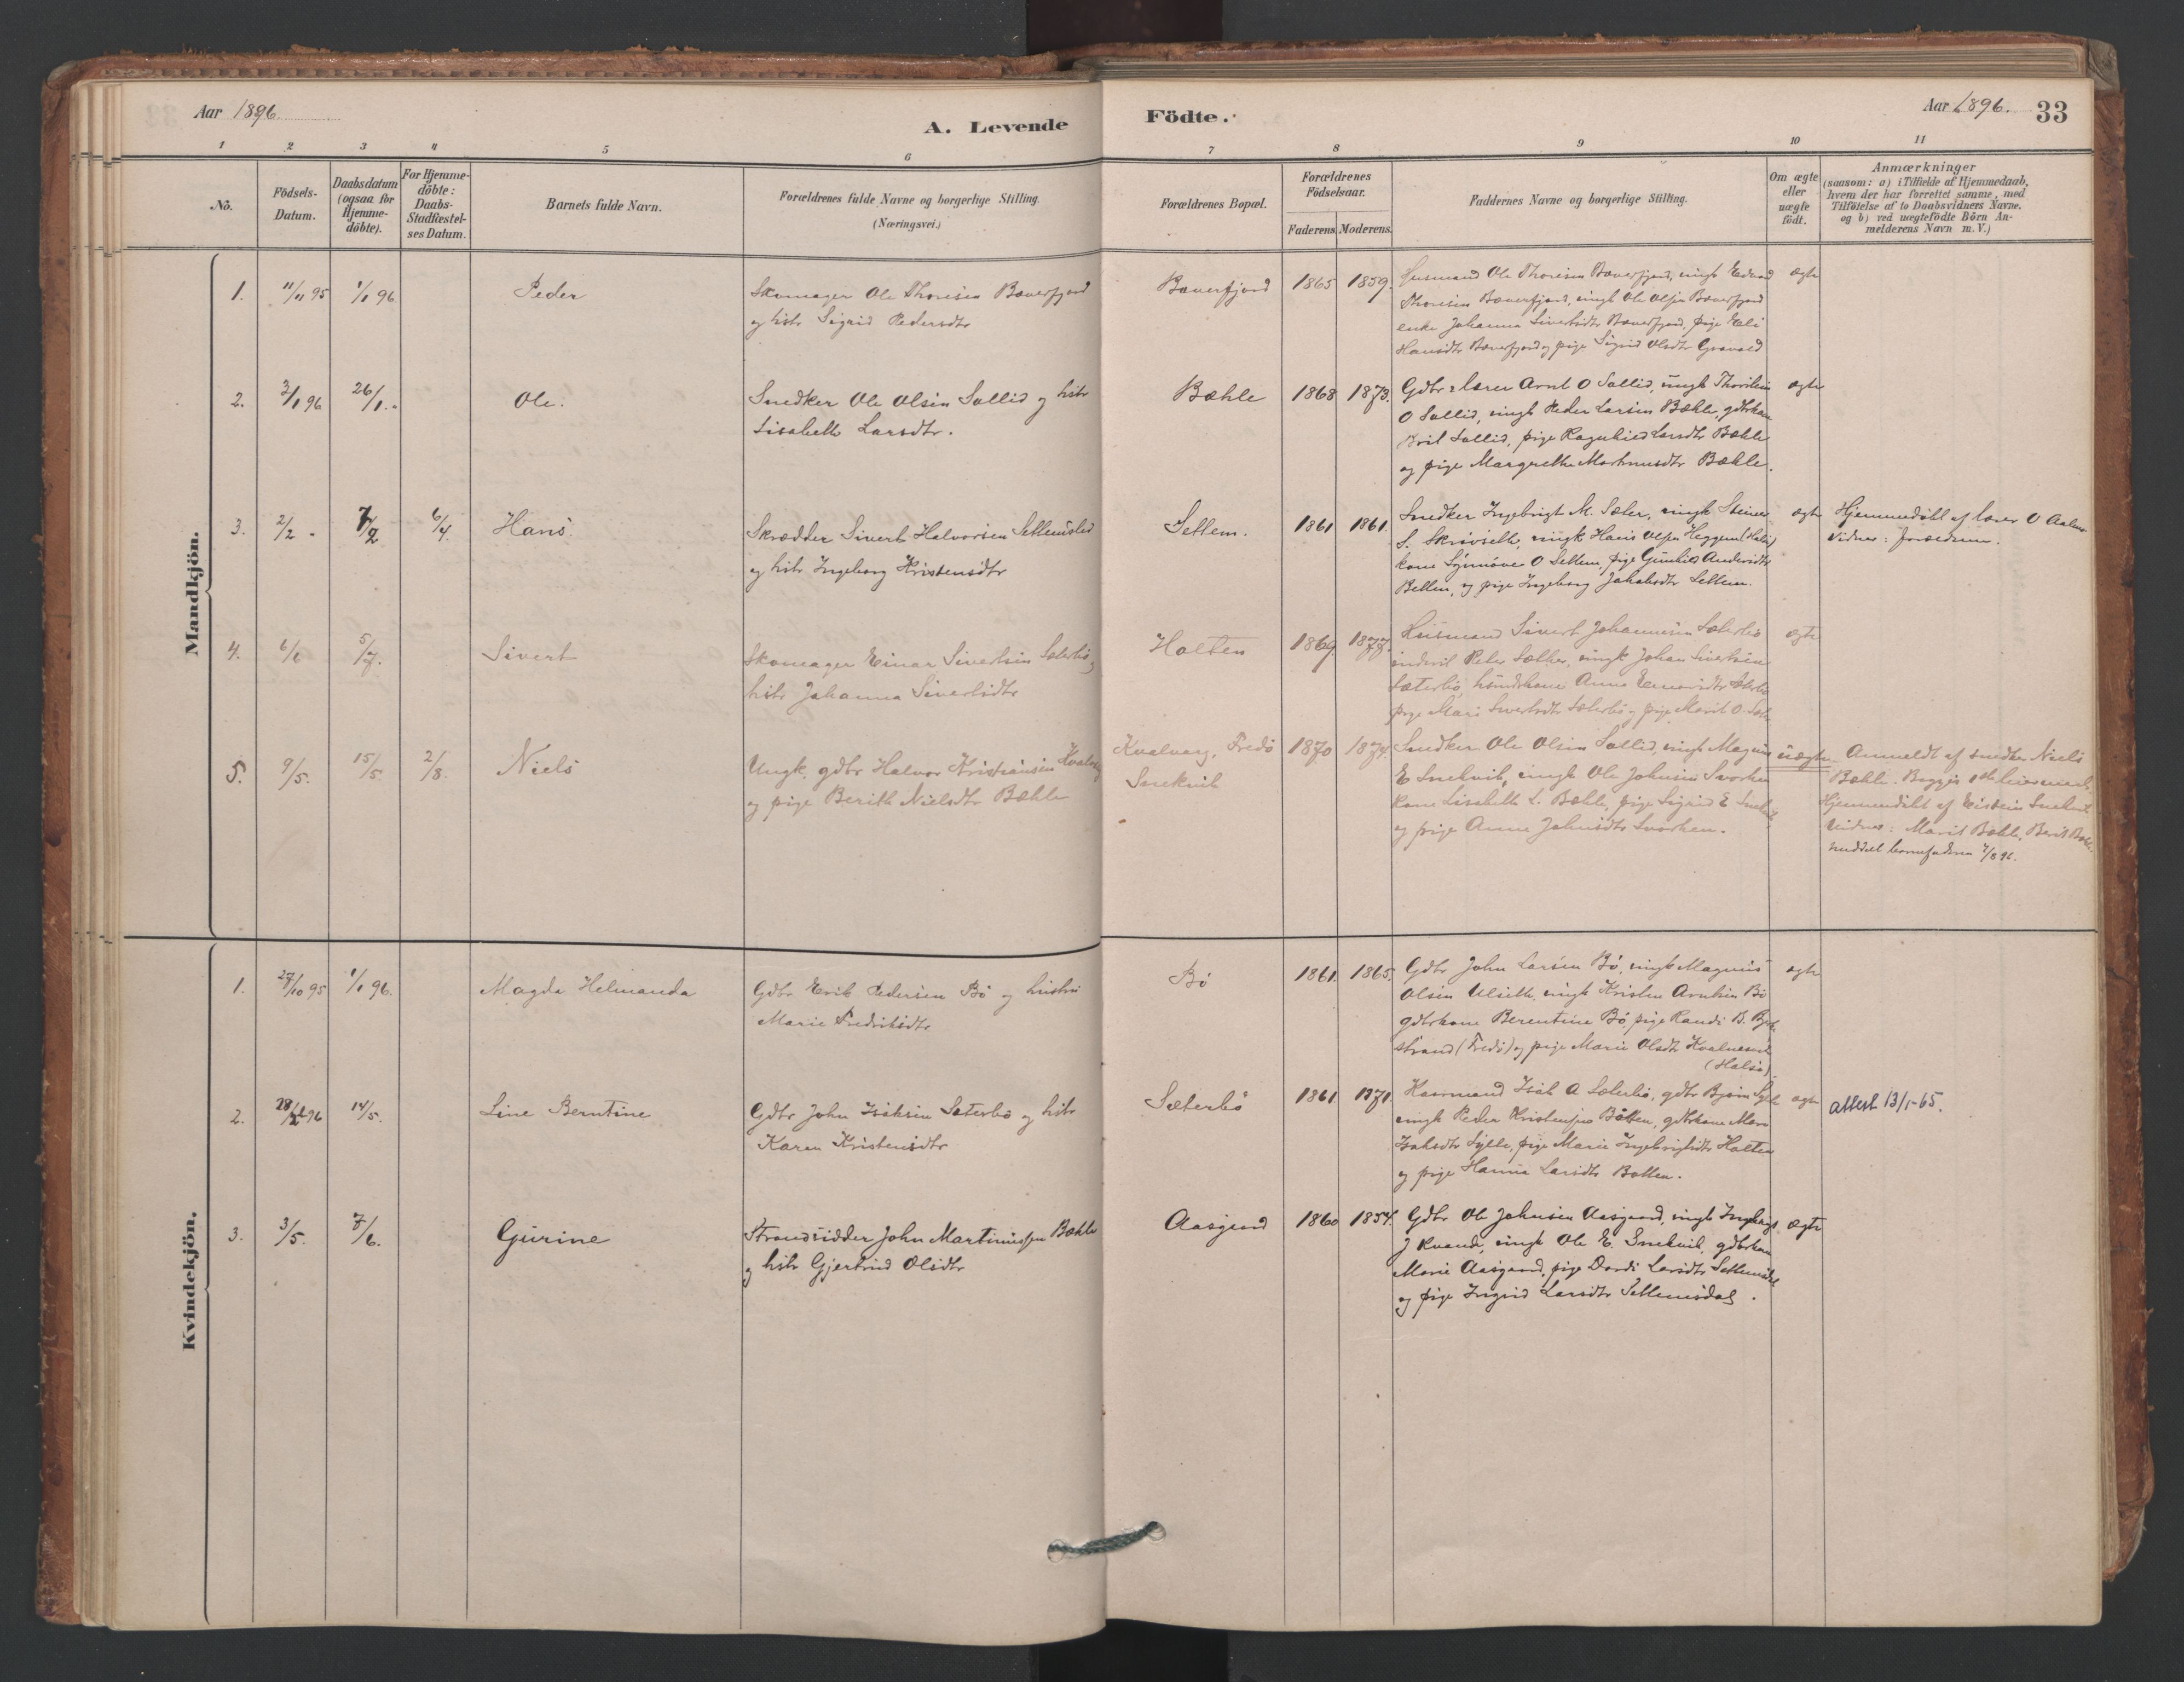 Aar 1896.
A. Levende
Födte.
Aar 1896. 33
1 2 3 4 5 6 7 8 9 10 11
No.
Födsels-
Datum.
Daabsdatum
(ogsaa for
Hjemme-
döbte).
For Hjemme-
döbte:
Daabs-
Stadfestel-
ses Datum.
Barnets fulde Navn.
Forældrenes fulde Navne og borgerlige Stilling.
(Næringsvei.)
Forældrenes Bopæl.
Forældrenes
Födselsaar.
Faderens. Moderens.
Faddernes Navne og borgerlige Stilling.
Om ægte
eller
uægte
födt.
Anmærkninger
(saasom: a) i Tilfælde af Hjemmedaab,
hvem der har forrettet samme, med
Tilföielse af to Daabsvidners Navne.
og b) ved uægtefödte Börn An-
melderens Navn m. V.)
Mandkjön.
1. 11/11 95 1/1 96. Peder
Skomager Ole Thoresen Bæverfjord
og hstr Sigrid Pedersdtr
Bæverfjord 1865 1859.
Husmand Ole Thoresen Bæverfjord, ungk Edvard
Thoresen Bæverfjord, ungk Ole Olsen Bæverfjord
enke Johanna Sivertsdtr Bæverfjord, pige Eli
Hansdtr Bæverfjord og pige Sigrid Olsdtr
ægte
2. 3/1 96 26/1. Ole.
Snedker Ole Olsen Sollid og hstr
Lisabeth Larsdtr.
Bæhle 1868 1873.
Gdbr & lærer Arnt O Sollid, ungk
O Sollid, ungk Peder Larsen Bæhle, gdbrkone
Sollid, pige Ragnhild Larsdtr Bæhle
og pige Margrethe Bæhle.
ægte
3. 2/2 - 7/2 6/4. Hans.
Skrædder Sivert Halvorsen
og hstr Ingeborg Kristensdtr
Settem. 1861 1861.
Snedker Ingebrigt M. Sæter, ungk Steiner
S. Skrövseth, ungk Hans Olsen Heggem (Halse)
kone Synnöve O Settem, pige Gunhild Andersdtr
Betten, og pige Ingeborg Jakobsdtr Settem.
ægte
Hjemmedöbt af lærer O
Vidner: forældrene.
4. 6/6 5/7. Sivert
Skomager Einar Sivertsen Sæterbö og
hstr Johanna Sivertsdtr
Holten 1869. 1877.
Husmand Sivert Johannesen Sæterbö
Peter Sæther, ungk Johan Sivertsen
Sæterbö, Anne Einarsdtr Sæterbö
pige Mari Sivertsdtr Sæterbö og pige Marit O.
ægte
5. 9/5. 15/5. 2/8. Niels
Ungk. gdbr Halvor Kristiansen
og pige Berith Nielsdtr Bæhle
Kvalvaag, Fredö
Snekvik
1870 1874.
Snedker Ole Olsen Sollid, ungk Magnus
E Snekvik, ungk Ole Johnsen Svorken
kone Lisabeth L. Bæhle, pige Sigrid E Snekvik
og pige Anne Johnsdtr Svorken.
uægte
Anmeldt af snedker Niels
Bæhle. Begges 1ste leiermaal.
Hjemmedöbt af Eistein Snekvik
Vidner: Marit Bæhle, Berit Bæhle.
meddelt barnefaderen 4/8 96.
Kvindekjön.
1. 27/10 95 1/1 96. Magda Helmanda
Gdbr Erik Pedersen Bö og hustru
Marie Fredriksdtr
Bö 1861. 1865.
Gdbr John Larsen Bö, ungk Magnus
Olsen Ulseth, ungk Kristen Arntsen Bö
gdbrkone Berentine Bö, pige Randi B.
strand (Fredö) og pige Marie Olsdtr Kvalnesvik
(Halsa)
ægte
2. 28/2 96 14/5. Line Berntine
Gdbr John Isaksen Sæterbö og hstr
Karen Kristensdtr
Sæterbö 1861 1871.
Kaarmand Isak A Sæterbö, gdbr Bjørn Sylte
ungk Peder Kristensen Botten, gdbrkone Mari
Isaksdtr Sylte, pige Marie Ingebrigtsdtr Holten
og pige Hanna Larsdtr Botten.
ægte
attest 13/1-65.
3. 3/5. 7/6. Gurine
Strandsidder John Martinussen Bæhle
og hstr Gjertrud Olsdtr
Aasgaard 1860 1854.
Gdbr Ole Johnsen Aasgaard, ungk
J Kvande, ungk Ole E. Snekvik, gdbrkone
Marie Aasgaard, pige Dordi Larsdtr Settemsdal
og pige Ingrid Larsdtr Settemsdal.
ægte